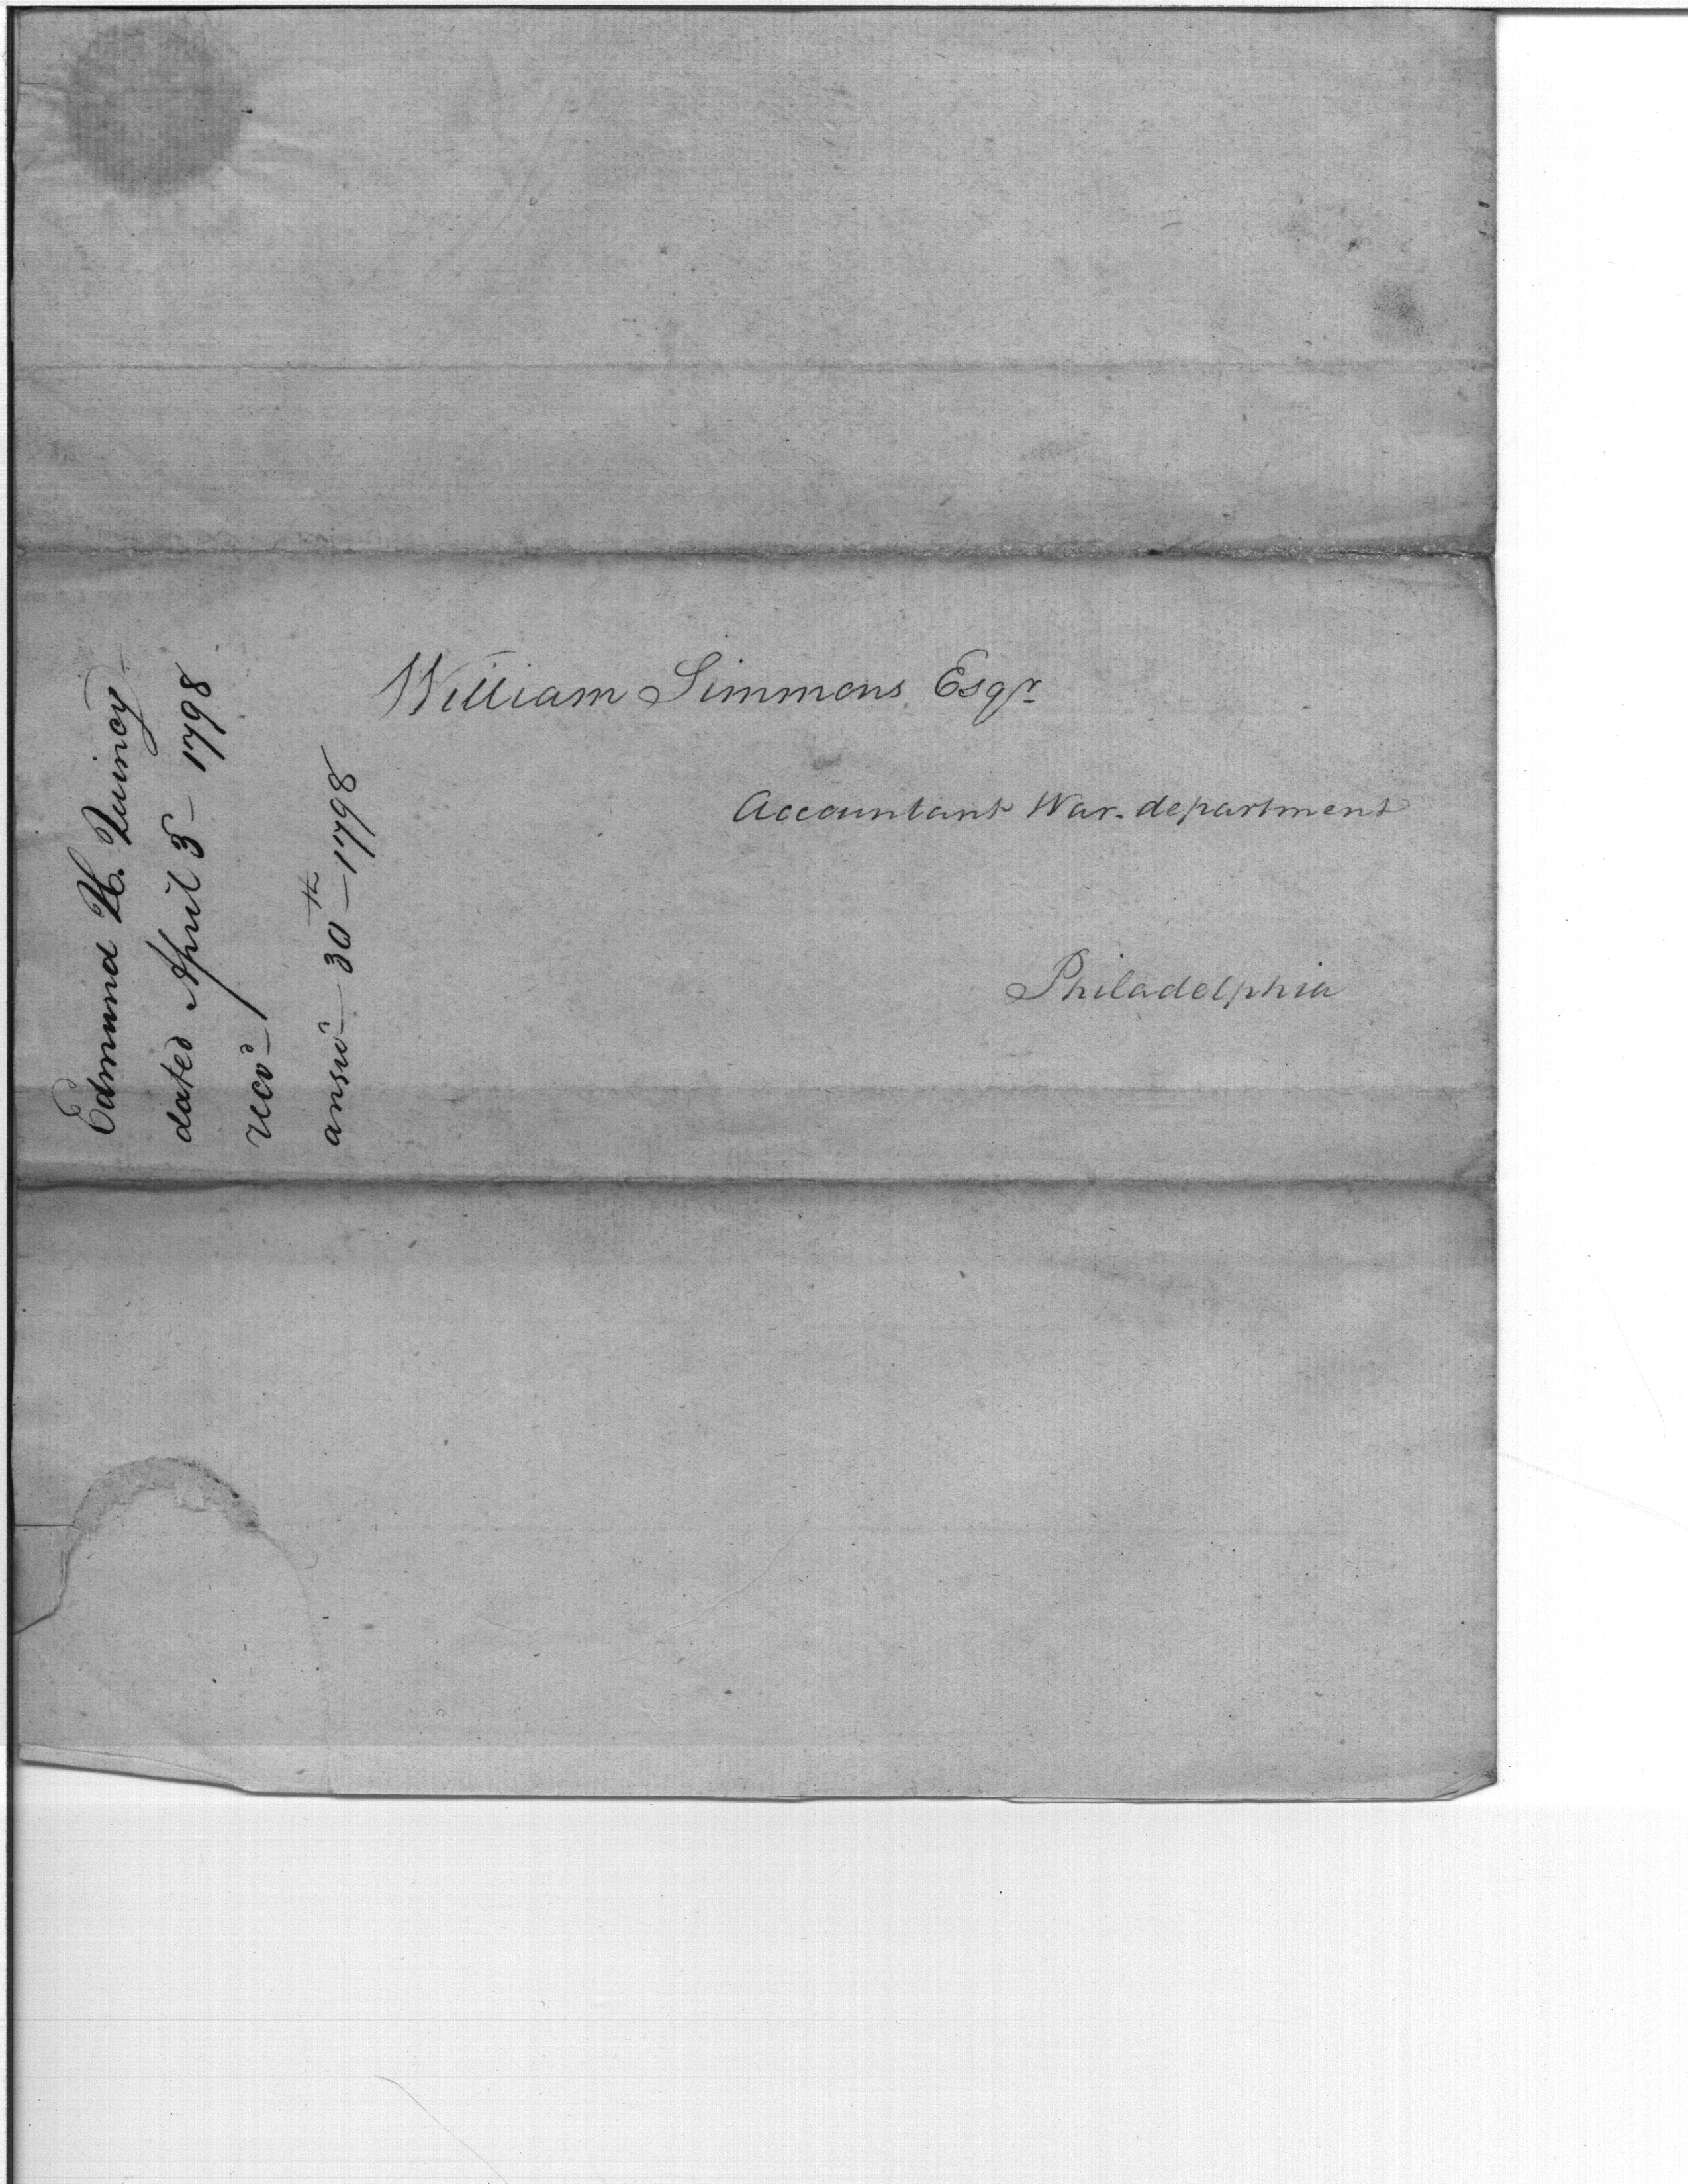 William Simmons Esqr
Accountant War. department
Philadelphia
Edmund H. Quincy
dated April 5 – 1798
recd –
answd – 30th – 1798